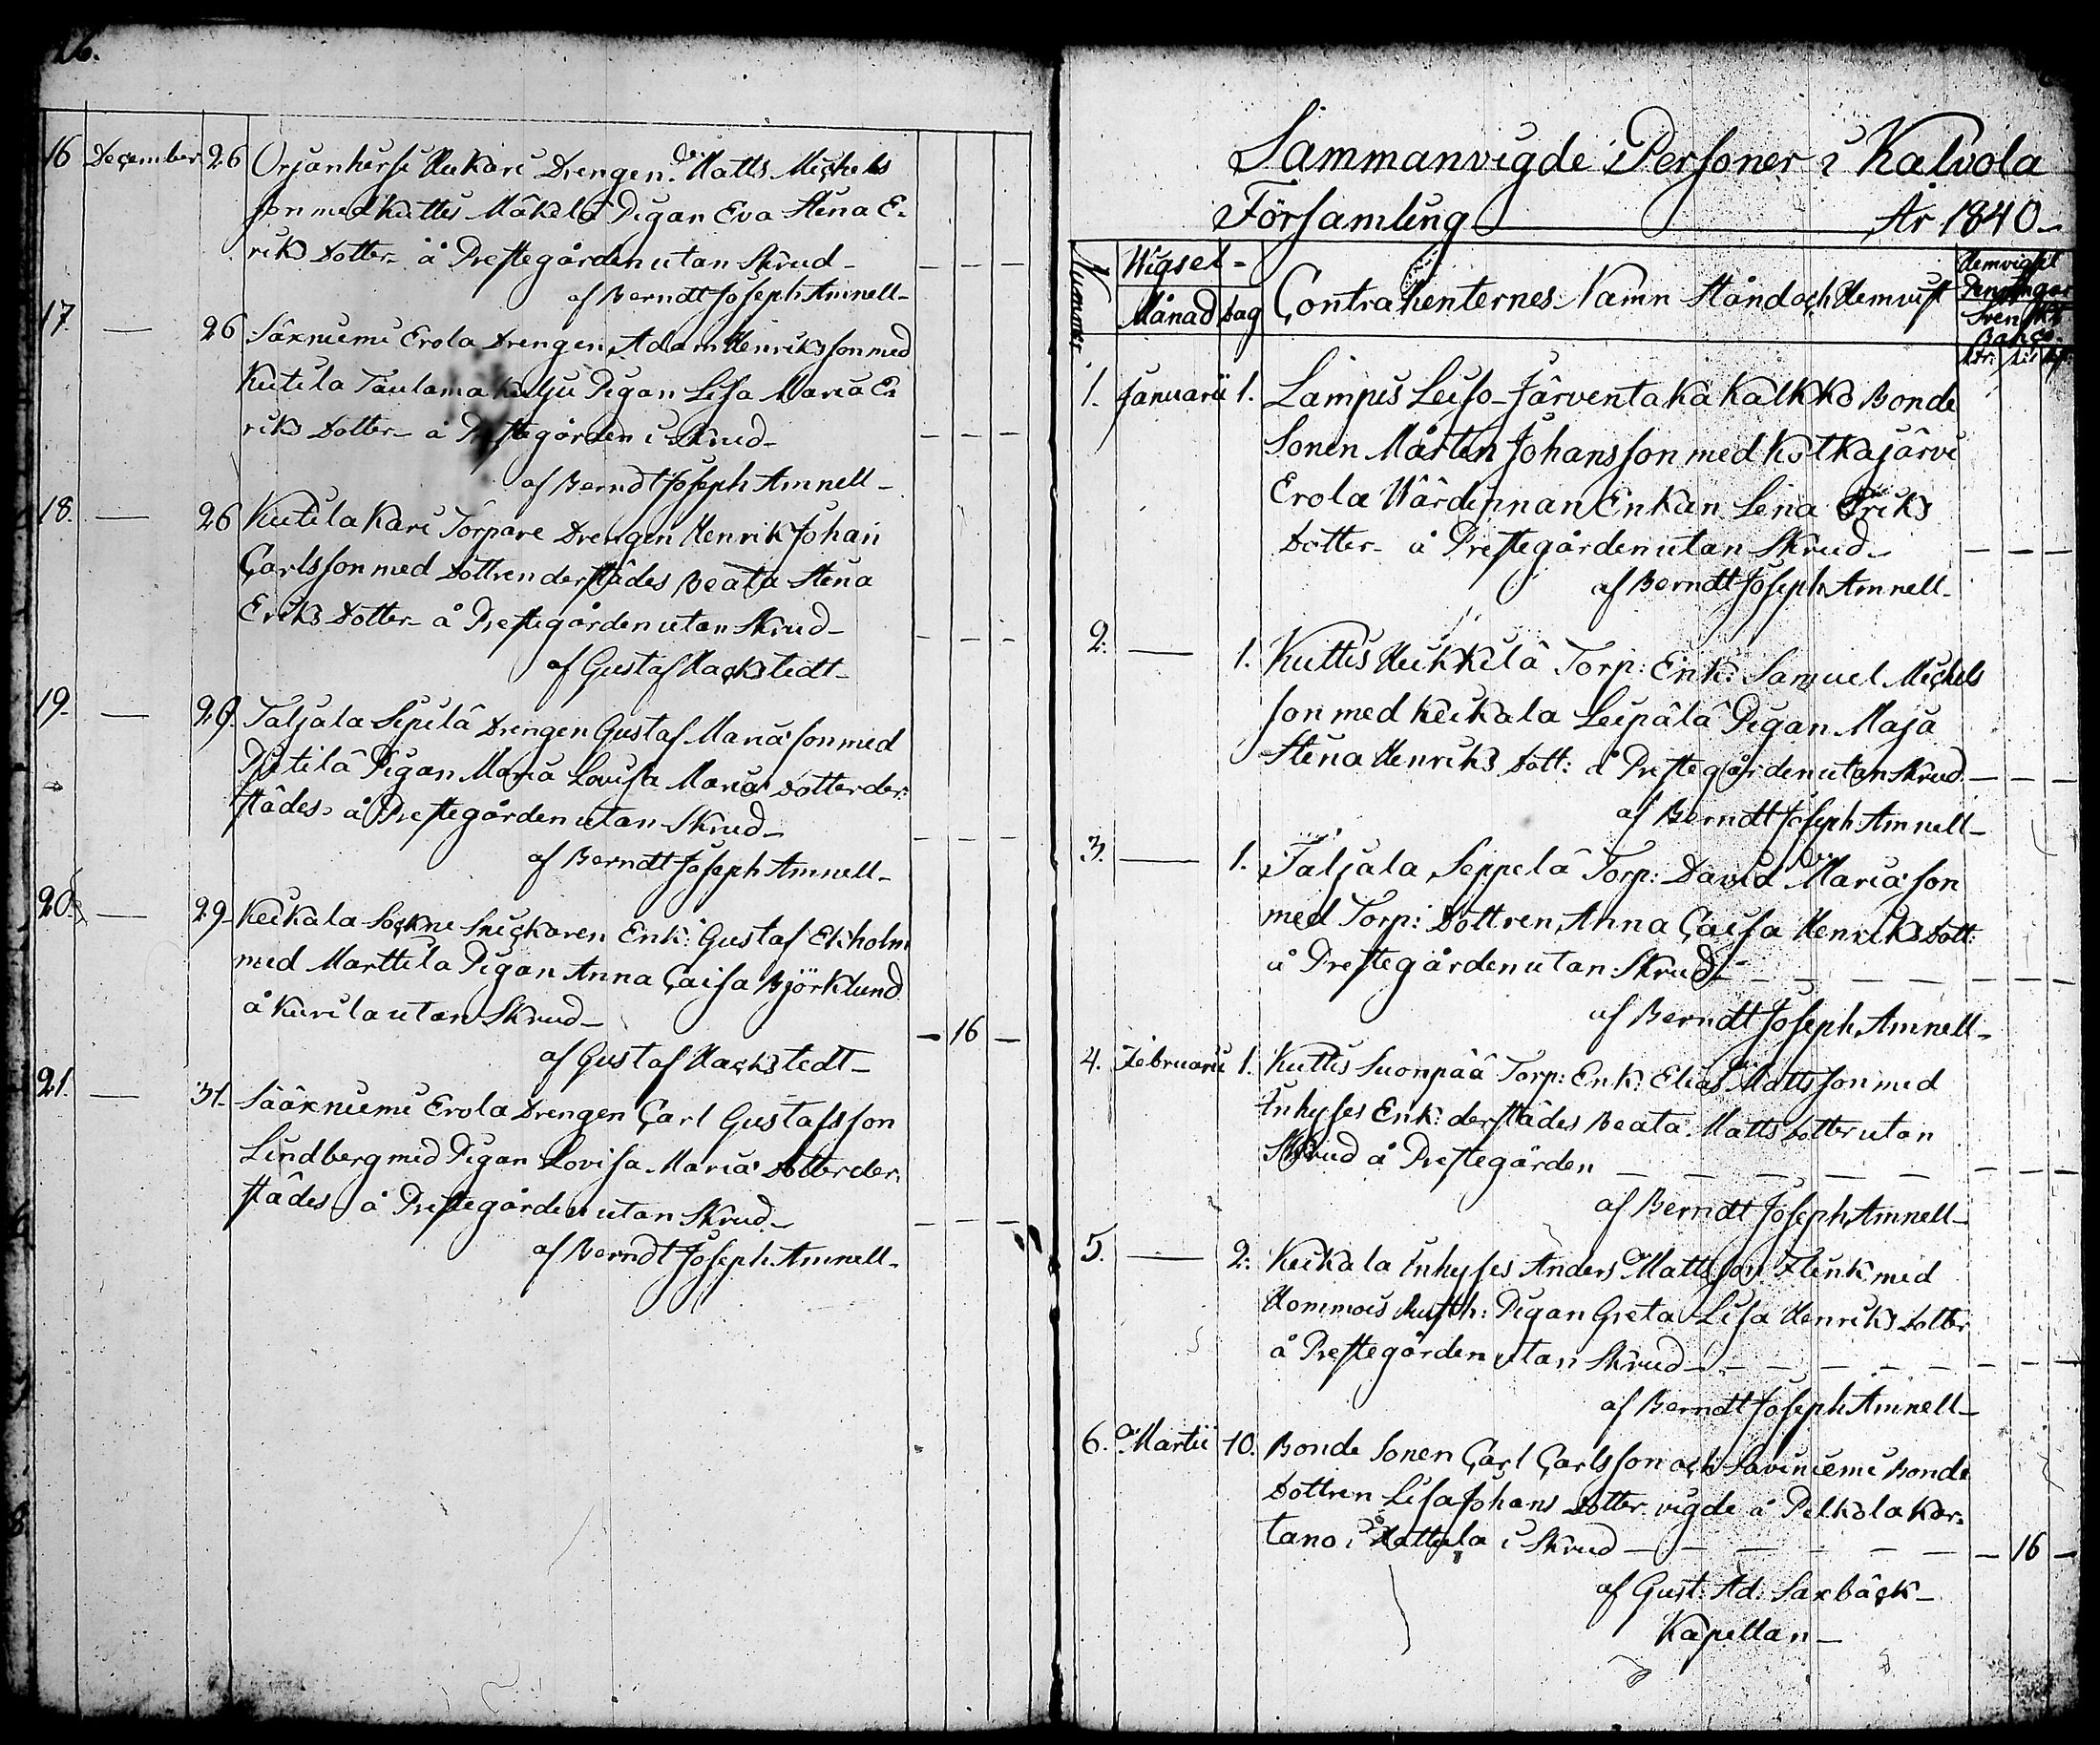 26.
16 December 26 Orjanhirsi Uckari Drengen Matts Michels
son med Kuttis Mäkelä Pigan Eva Stina E-
riks Dotter å Prestegården utan Skrud
af Berndt Joseph Amnell
17. — 26 Säxniemi Erola Drengen Adam Henriksson med
Kutila Taulama Pigan Lisa Maria E-
riks Dotter å Prestegården i Skrud
af Berndt Joseph Amnell
18. — 26 Kutila Kari Torpare Drengen Henrik Johan
Carlsson med Dottren derstädes Beata Stina
Eriks Dotter å Prestegården utan Skrud
af Gustaf Hackstedt
19. — 29. Taljala Sipilä Drengen Gustaf Mariæ son med
Pigan Maria Lovisa Mariæ Dotter der-
städes å Prestegården utan Skrud
af Berndt Joseph Amnell
20. — 29. Keikala Sockne Snickaren Enk: Gustaf Ekholm
med Marttila Pigan Anna Caisa Björklund
å Kurila utan Skrud — 16 —
af Gustaf Hackstedt
21. — 31. Sääxniemi Erola Drengen Carl Gustafsson
Lindberg med Pigan Lovisa Mariæ Dotter der-
städes å Prestegården utan Skrud
af Berndt Joseph Amnell
Sammanvigde Personer i Kalvola
Församling År 1840
Nummer Wigsel- Contrahenternes Namn Stånd och Hemvist Hemvigsel
Månad Dag Penningar
Svenskt
Banco
1. Januarii 1. Lampis Leiso Järventaka Kalkks Bonde
Sonen Mårten Johansson med Kotkajärvi
Erola Wärdinnan Enkan Lena Eriks
Dotter å Prestegården utan Skrud
af Berndt Joseph Amnell
2. — 1. Kuttis Uckkilä Torp: Enk: Samuel Michels
son med Keikala Leipälä Pigan Maja
Stina Henriks Dott: å Prestegården utan Skrud
af Berndt Joseph Amnell
3. — 1. Taljala Seppelä Torp: David Mariæ son
med Torp: Dottren Anna Caisa Henriks Dott:
å Prestegården utan Skrud
af Berndt Joseph Amnell
4. Februarii 1. Kuttis Suonpää Torp: Enk: Elias Mattsson med
Inhyses Enk: derstädes Beata Matts Dotter utan
Skrud å Prestegården
af Berndt Joseph Amnell
5. — 2. Keikala Inhyses Anders Mattsson Flink med
Hommois Rusth: Pigan Greta Lisa Henriks Dotter
å Prestegården utan Skrud
af Berndt Joseph Amnell
6. Martii 10. Bonde Sonen Carl Carlsson och Saviniemi Bonde
Dottren Lisa Johans Dotter vigde å Pelkola Kar-
tano i Hattula i Skrud — 16 —
af Gust. Ad. Saxbäck
Kapellan